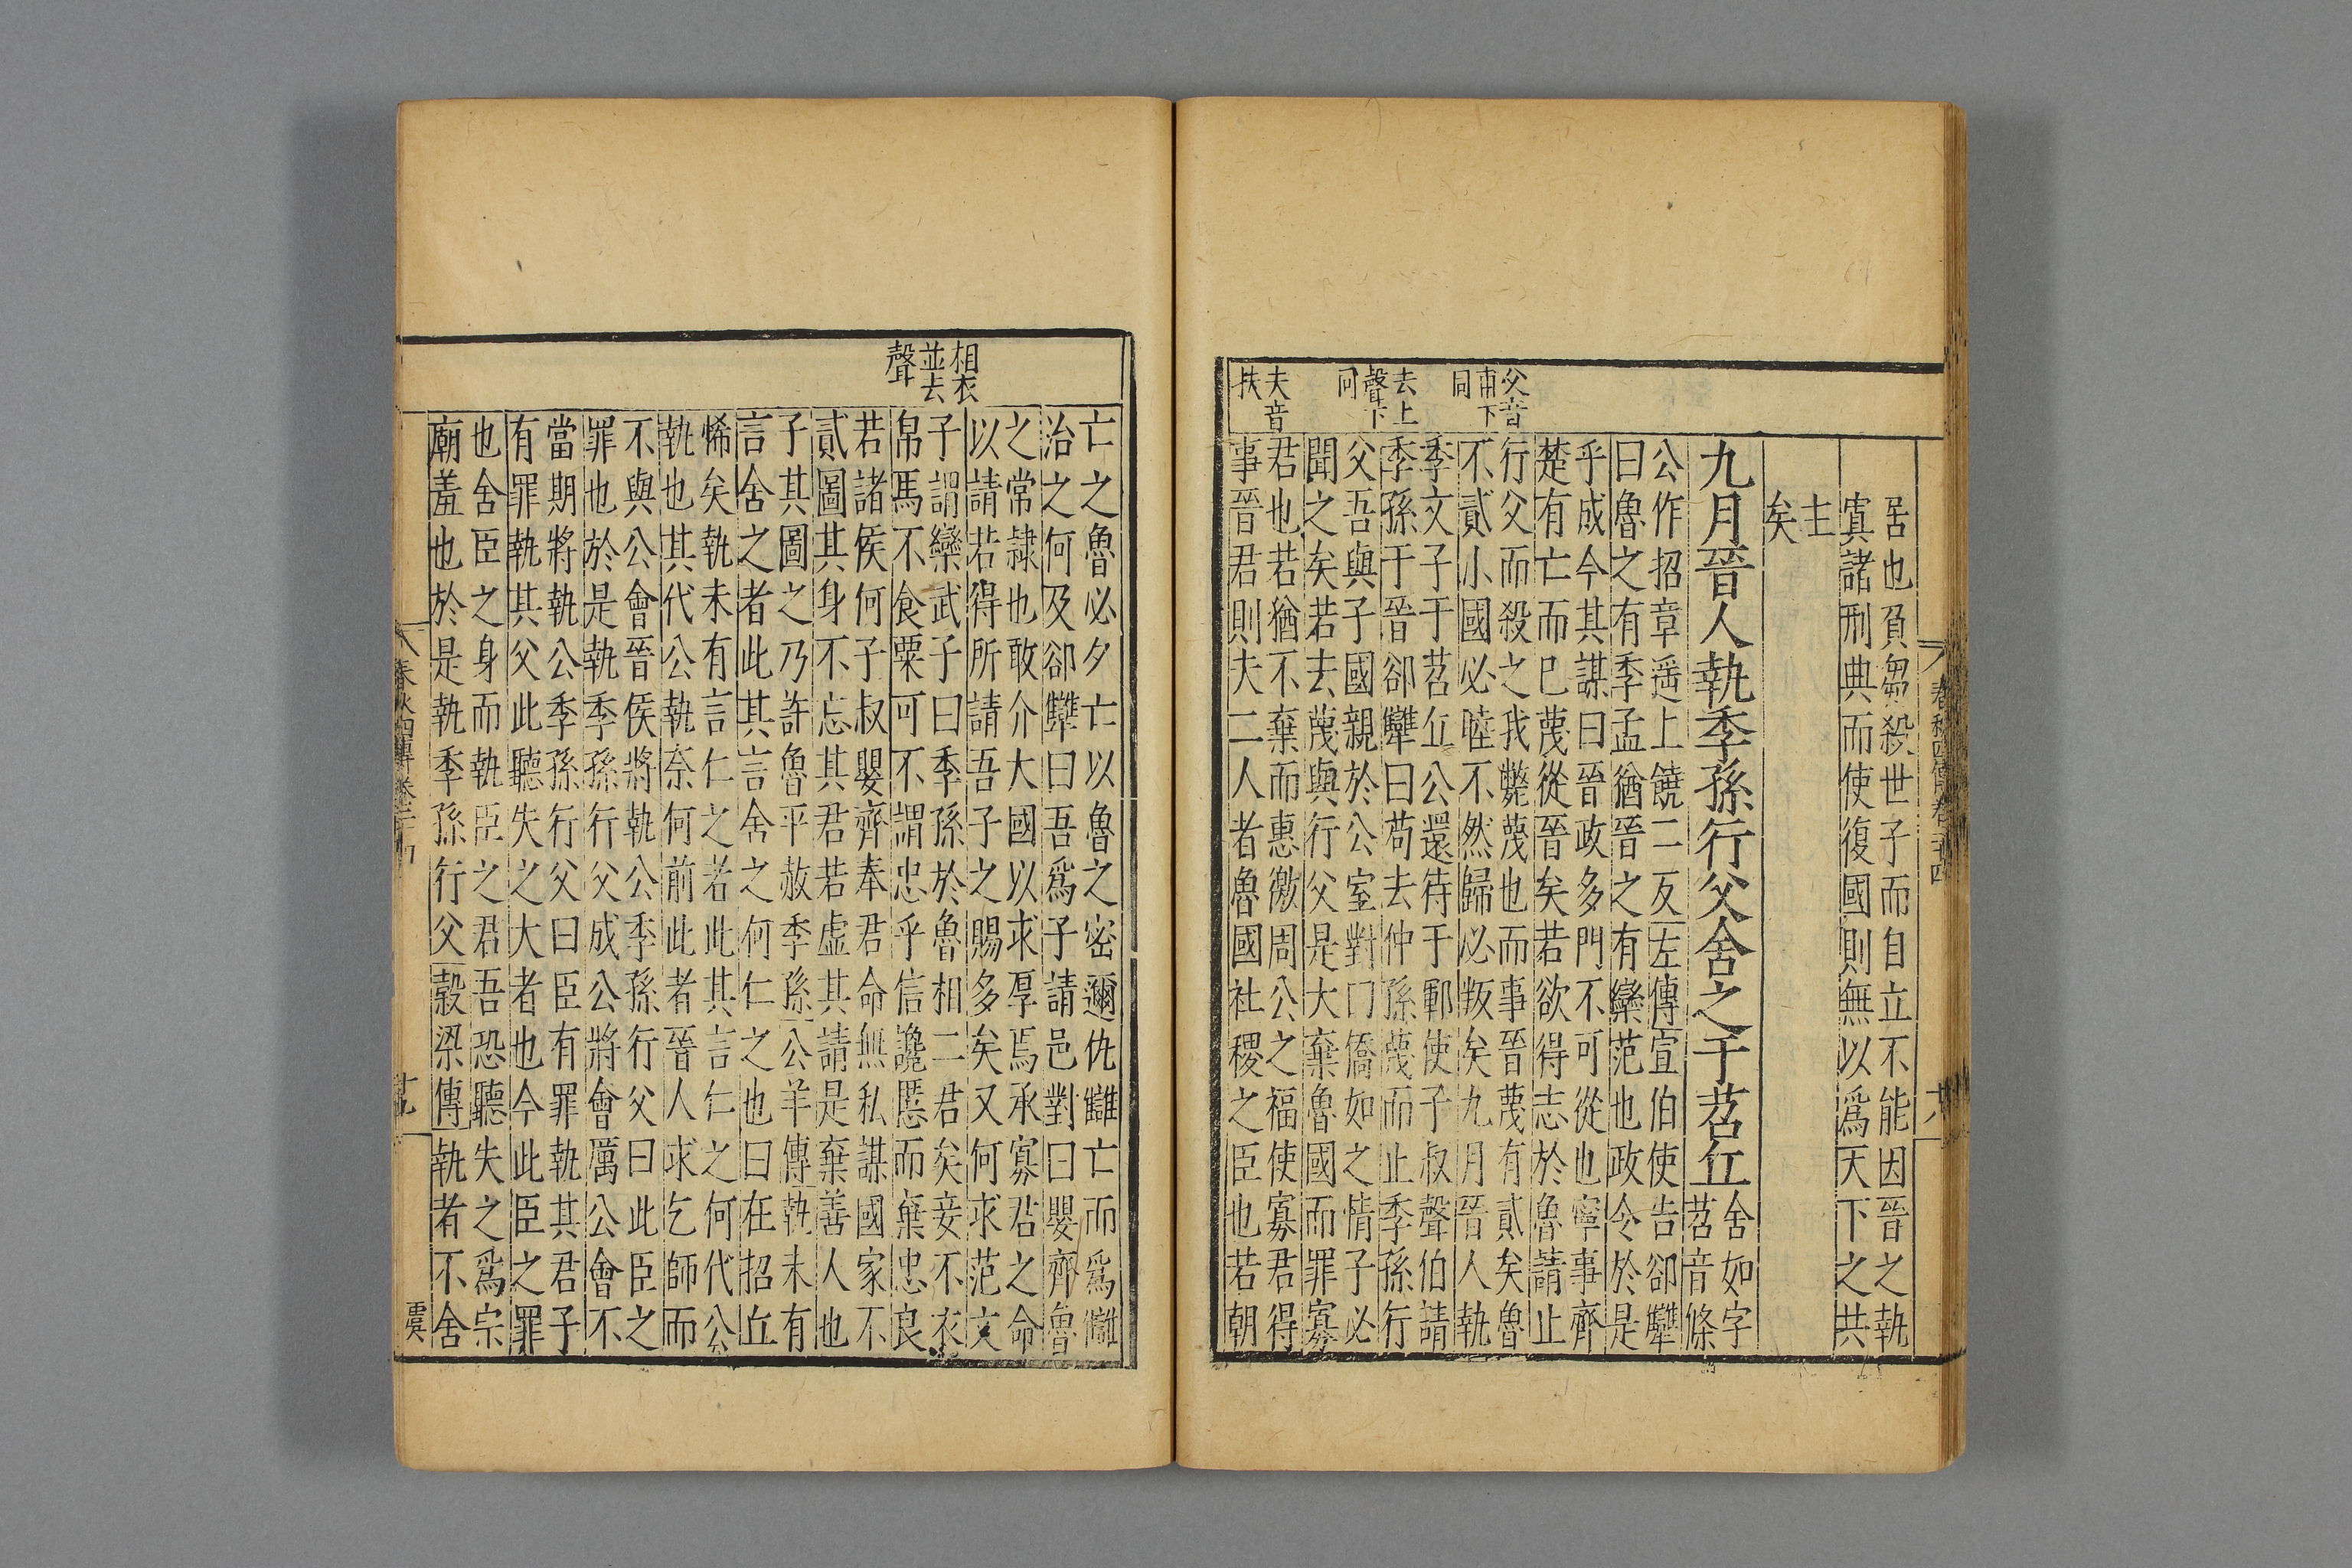 春秋四傳卷二十四
十八
居也負芻殺世子而自立不能因晉之執
寘諸刑典而使復國則無以爲天下之共
主
矣
九月晉人執季孫行父舍之于苕丘
舍如字
苕音條
公作招章遥上饒二反左傳宣伯使告郤犫
曰魯之有季孟猶晉之有欒范也政令於是
乎成今其謀曰晉政多門不可從也寧事齊
楚有亡而已蔑從晉矣若欲得志於魯請止
行父而殺之我斃蔑也而事晉蔑有貳矣魯
不貳小國必睦不然歸必叛矣九月晉人執
季文子于苕丘公還待于鄆使子叔聲伯請
季孫于晉郤犫曰苟去仲孫蔑而止季孫行
父吾與子國親於公室對曰僑如之情子必
聞之矣若去蔑與行父是大棄魯國而罪寡
君也若猶不棄而惠徼周公之福使寡君得
事晉君則夫二人者魯國社稷之臣也若朝
父音
甫下
同
去上
聲下
同
夫音
扶
亡之魯必夕亡以魯之密邇仇讎亡而爲讎
治之何及郤犫曰吾爲子請邑對曰嬰齊魯
之常隷也敢介大國以求厚焉承寡君之命
以請若得所請吾子之賜多矣又何求范文
子謂欒武子曰季孫於魯相二君矣妾不衣
帛馬不食粟可不謂忠乎信讒慝而棄忠良
若諸侯何子叔嬰齊奉君命無私謀國家不
貳圖其身不忘其君若虛其請是棄善人也
子其圖之乃許魯平赦季孫公羊傳執未有
言舍之者此其言舍之何仁之也曰在招丘
悕矣執未有言仁之者此其言仁之何代公
執也其代公執奈何前此者晉人來乞師而
不與公會晉侯將執公季孫行父曰此臣之
罪也於是執季孫行父成公將會厲公會不
當期將執公季孫行父曰臣有罪執其君子
有罪執其父此聽失之大者也今此臣之罪
也舍臣之身而執臣之君吾恐聽失之爲宗
廟羞也於是執季孫行父穀梁傳執者不舍
相衣
並去
聲
春秋四傳卷二十四
十九
虞